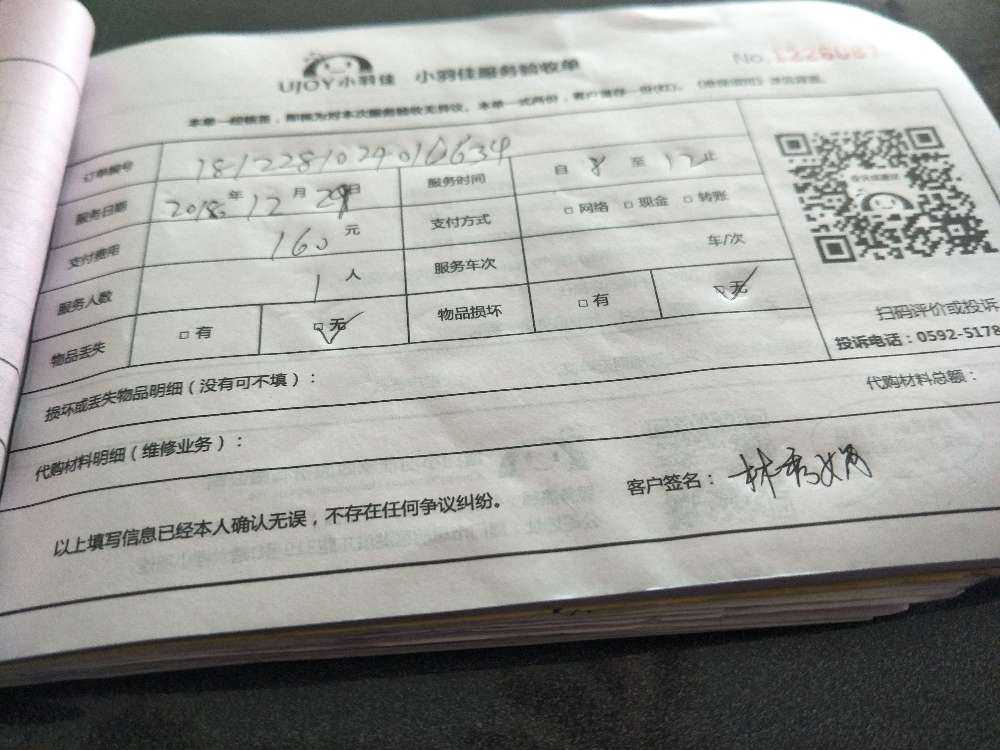 UJOY小羽佳 小羽佳服务验收单 No.1226087
本单一经签署，即视为对本次服务验收无异议。本单一式两份，客户留存一份(红)。
订单编号 18122810240
服务日期 2018年12月29日 服务时间 自8至12止
支付费用 160元 支付方式 □网络 □现金 □转账
服务人数 1人 服务车次 车/次
物品丢失 □有 □无 物品损坏 □有 □无
扫码评价或投诉
投诉电话：0592-5178
损坏或丢失物品明细（没有可不填）：
代购材料明细（维修业务）： 代购材料总额：
以上填写信息已经本人确认无误，不存在任何争议纠纷。 客户签名：林秀娟